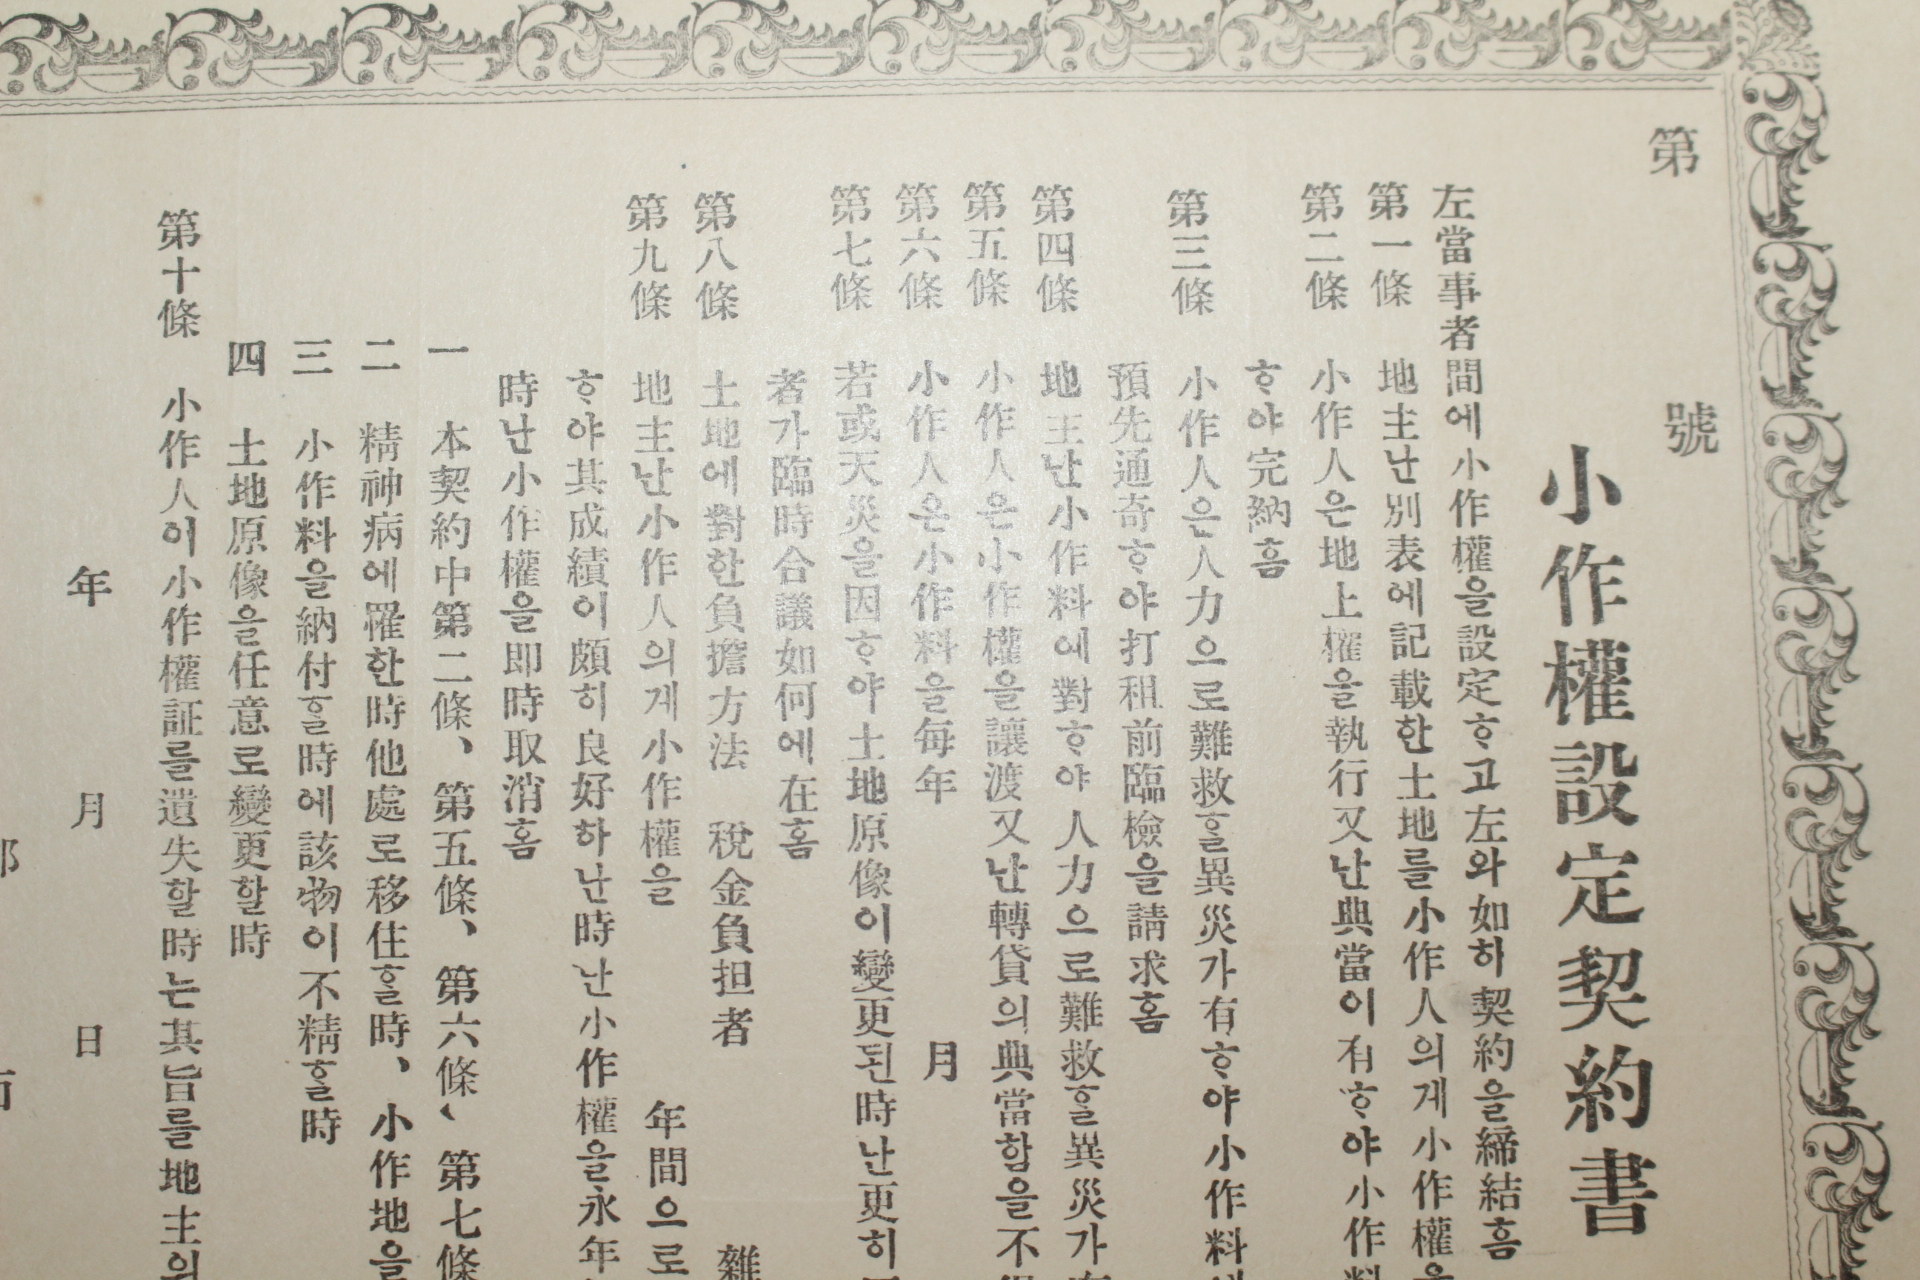 第 號
小作權設定契約書
左當事者間에小作權을設定ᄒᆞ고左와如하契約을締結홈
第一條 地主난別表에記載한土地를小作人의게小作權을
第二條 小作人은地上權을執行又난典當이有ᄒᆞ야小作料
ᄒᆞ야完納홈
第三條 小作人은人力으로難救ᄒᆞᆯ異災가有ᄒᆞ야小作料에
預先通奇ᄒᆞ야打租前臨檢을請求홈
第四條 地主난小作料에對ᄒᆞ야人力으로難救ᄒᆞᆯ異災가有
第五條 小作人은小作權을讓渡又난轉貸의典當함을不得
第六條 小作人은小作料을每年 月
第七條 若或天災을因ᄒᆞ야土地原像이變更된時난更히
者가臨時合議如何에在홈
第八條 土地에對한負擔方法 稅金負担者 雜
第九條 地主난小作人의게小作權을 年間으로
ᄒᆞ야其成績이頗히良好하난時난小作權을永年
時난小作權을即時取消홈
一 本契約中第二條、第五條、第六條、第七條
二 精神病에羅한時他處로移住ᄒᆞᆯ時、小作地을
三 小作料을納付ᄒᆞᆯ時에該物이不精ᄒᆞᆯ時
四 土地原像을任意로變更할時
第十條 小作人이小作權証를遺失할時는其旨를地主의
年 月 日
郡